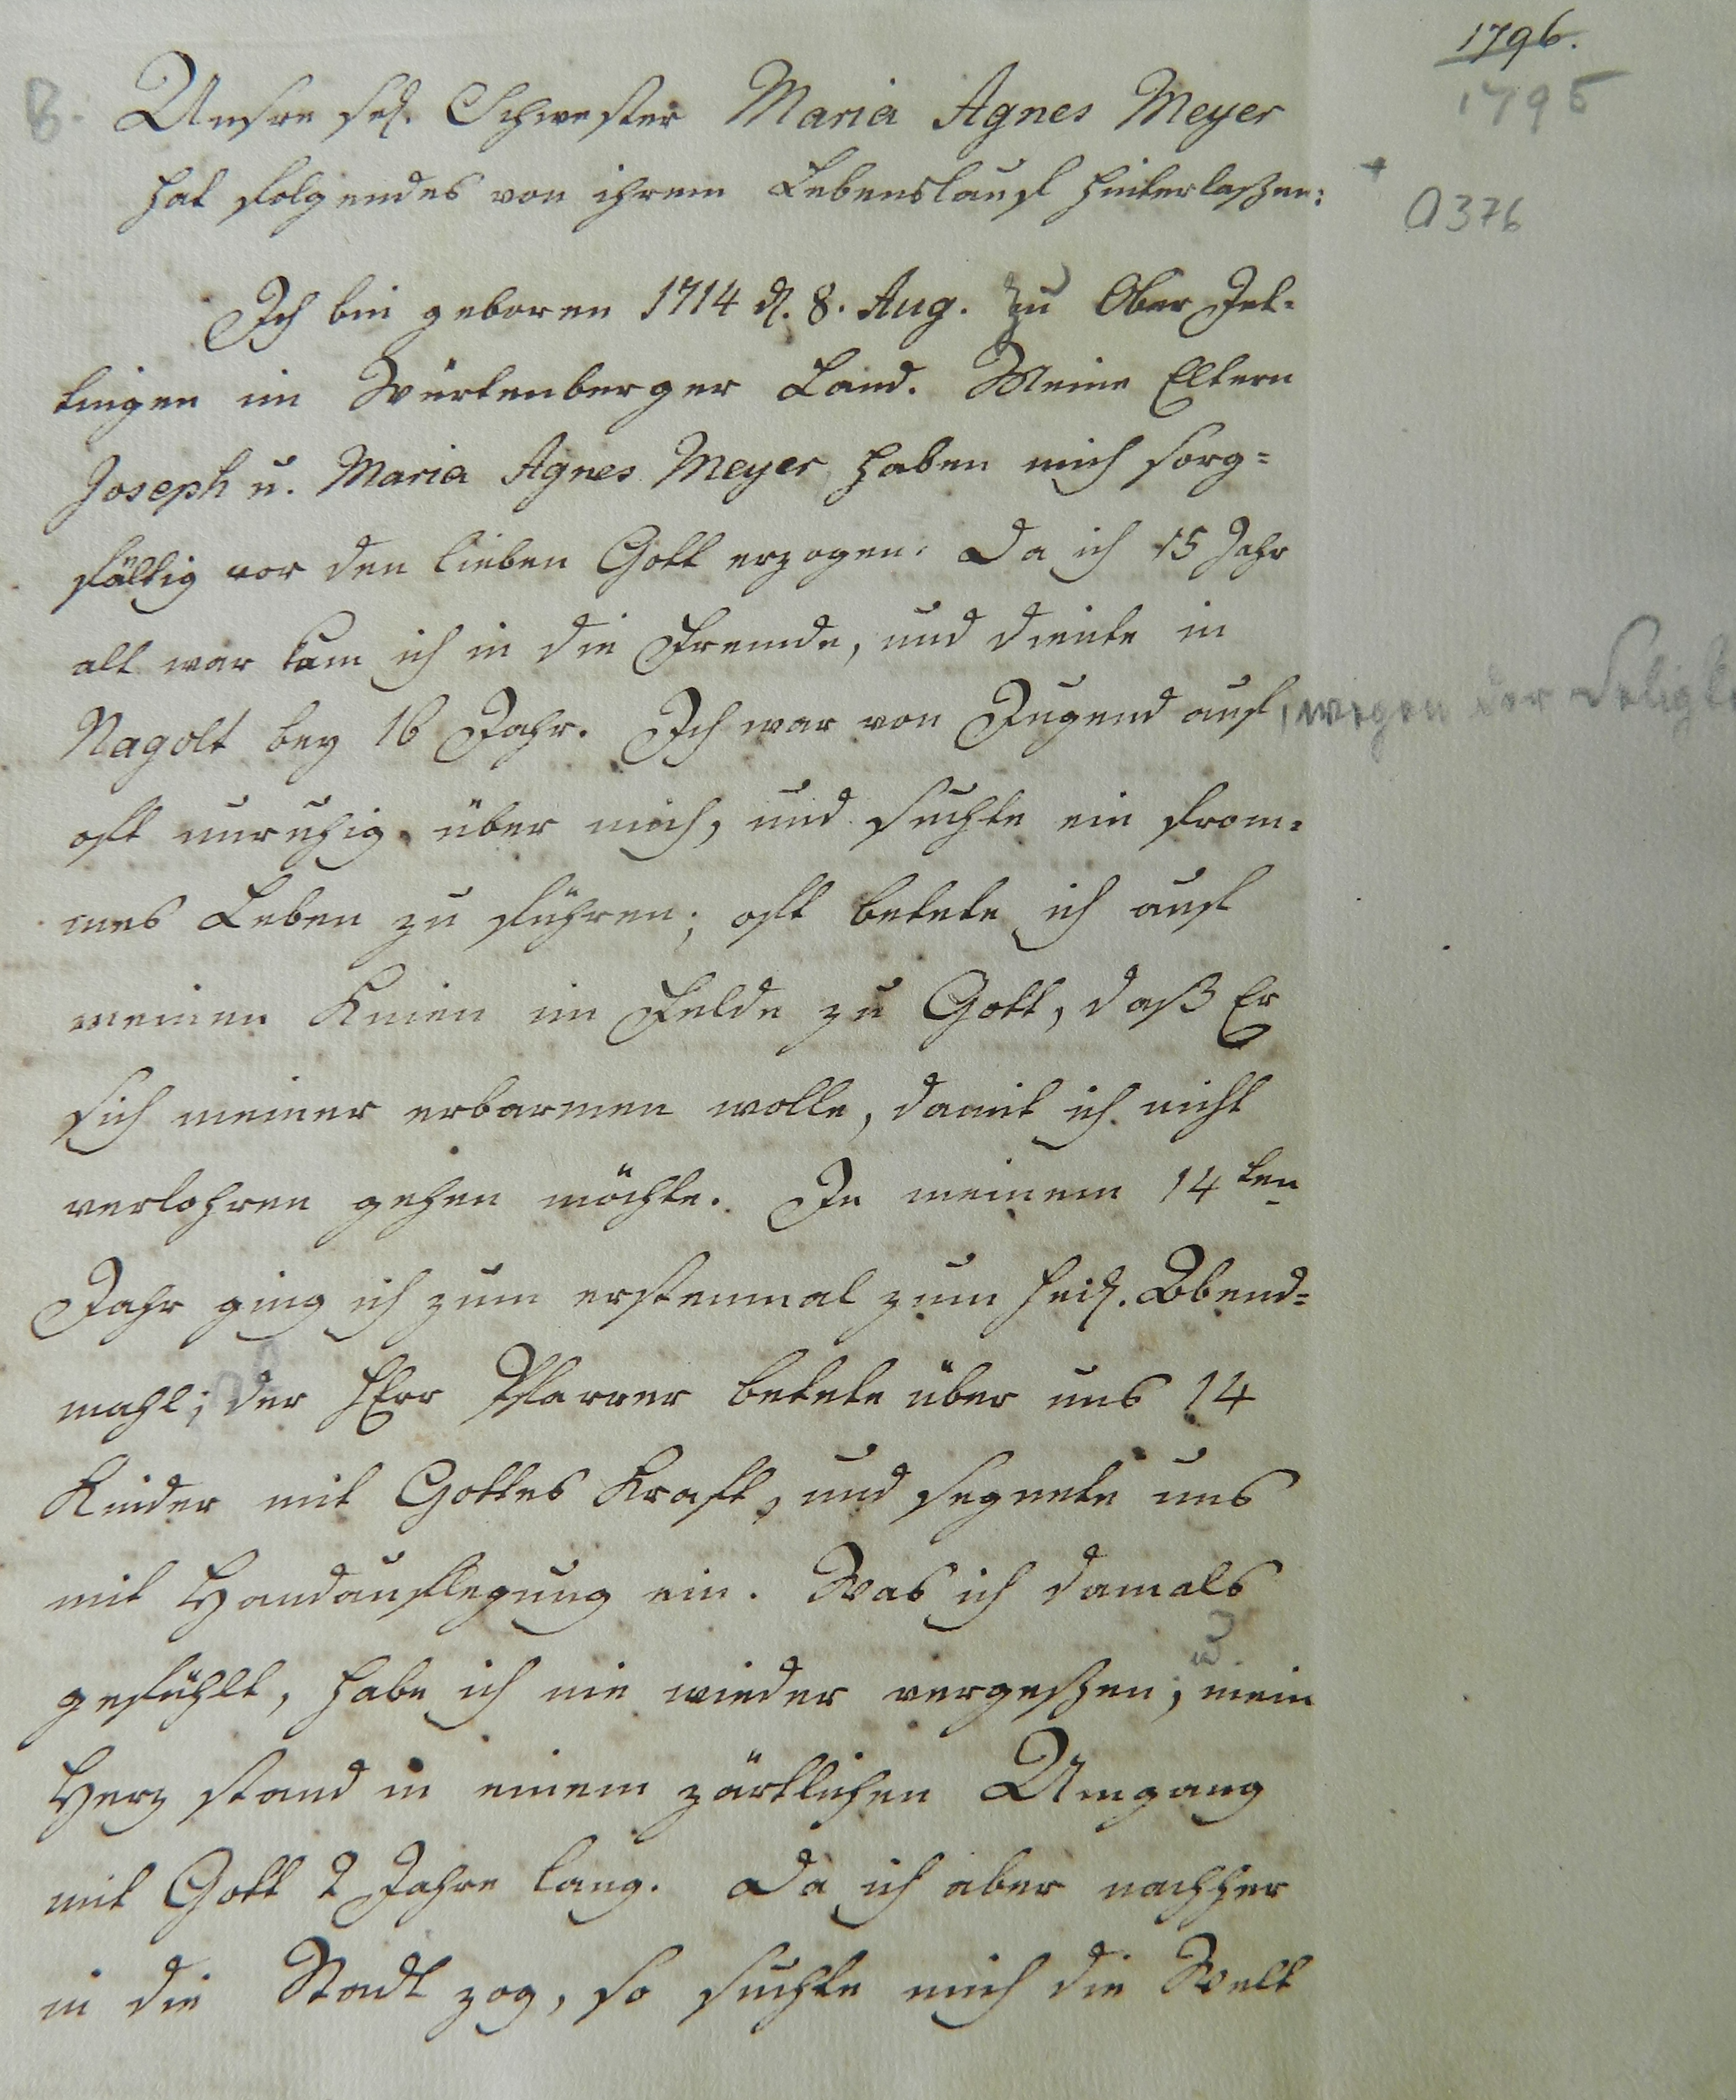 1796.
1795
8.
Unsre sel. Schwester Maria Agnes Meyer
hat folgendes von ihrem Lebenslauf hinterlaßen:
+
A 376
Ich bin geboren 1714 d. 8. Aug. zu Ober Jet-
tingen im Würtenberger Land. Meine Eltern
Joseph u. Maria Agnes Meyer haben mich sorg=
fältig vor den lieben Gott erzogen. Da ich 15 Jahr
alt war kam ich in die Fremde, und diente in
Nagolt bey 16 Jahr. Ich war von Jugend auf, wegen der
oft unruhig über mich, und suchte ein from-
mes Leben zu führen; oft betete ich auf
meinen Knien im Felde zu Gott, daß Er
sich meiner erbarmen wolle, damit ich nicht
verlohren gehen möchte. In meinem 14ten
Jahr ging ich zum erstenmal zum heil. Abend=
mahl; der HErr Pfarrer betete über uns 14
Kinder mit Gottes Kraft, und segnete uns
mit Handauflegung ein. Was ich damals
gefühlt, habe ich nie wieder vergeßen; u mein
Herz stand in einem zärtlichen Umgang
mit Gott 2 Jahre lang. Da ich aber nachher
in die Stadt zog, so suchte mich die Welt